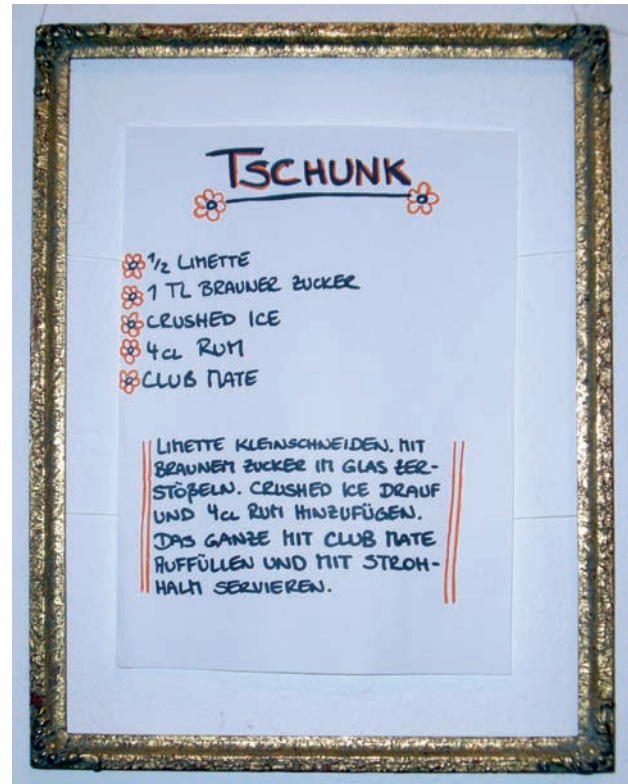 TSCHUNK
1/2 LIMETTE
1 TL BRAUNER ZUCKER
CRUSHED ICE
4CL RUM
CLUB MATE
LIMETTE KLEINSCHNEIDEN. MIT
BRAUNEM ZUCKER IM GLAS ZER-
STÖßELN. CRUSHED ICE DRAUF
UND 4CL RUM HINZUFÜGEN.
DAS GANZE MIT CLUB MATE
AUFFÜLLEN UND MIT STROH-
HALM SERVIEREN.